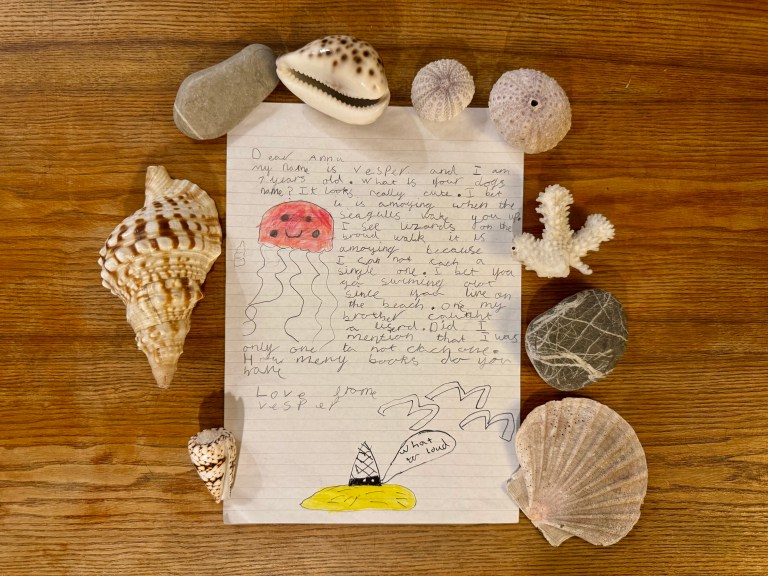 Dear Anna
my name is Vesper and I am
7 years old. What is your dogs
name? It looks really cute. I bet
it is amoying when the
seagulls wake you up.
I see lizards on the
broud walk it is
amoying because
I can not cach a
single one. I bet you
go swiming alot
since you live on
the beach. One my
brother caught
a lizerd. Did I
mention that I was
only one to not chach one.
How meny books do you
have
Love frome
Vesper
what
so loud